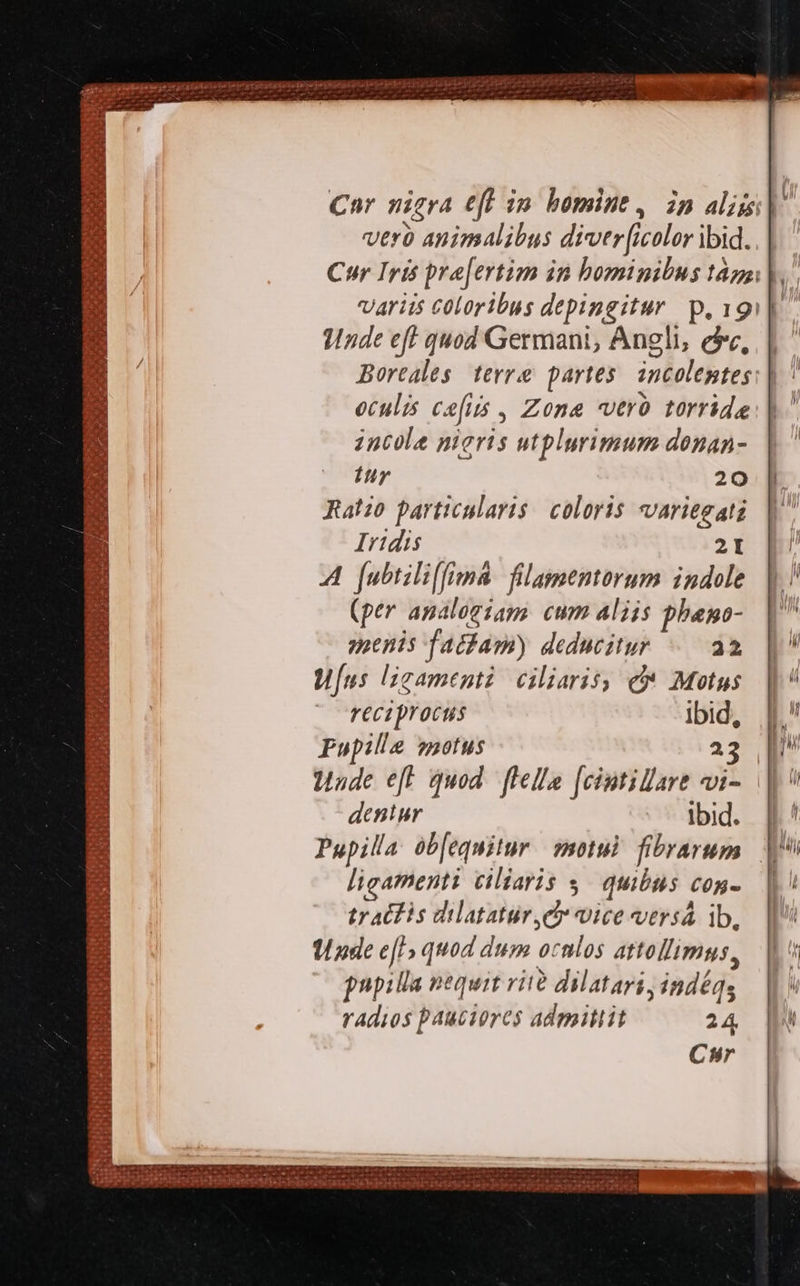 Cur nigra eſt in homine, in aliis
verò animalibus diverſicolor ibid.
Cur Iris præſertim in hominibus tàm
variis coloribus depingitur p. 19
Unde eſt quod Germani, Angli, &c.
Boreales terræ partes incolentes
oculis cæſiis, Zonæ verò torridæ
incolæ nigris utplurimum donan-
tur 20
Ratio particularis coloris variegati
Iridis 21
A ſubtiliſſimâ filamentorum indole
(per analogiam cum aliis phæno-
menis factam) deducitur 22
Uſus ligamenti ciliaris, & Motus
reciprocus ibid.
Pupillæ motus 23
Unde eſt quod ſtellæ ſcintillare vi-
dentur ibid.
Pupilla obſequitur motui fibrarum
ligamenti ciliaris, quibus con-
tractis dilatatur, & vice versâ ib.
Unde eſt, quod dum oculos attollimus,
pupilla nequit ritè dilatari, indéq;
radios pauciores admittit 24
Cur